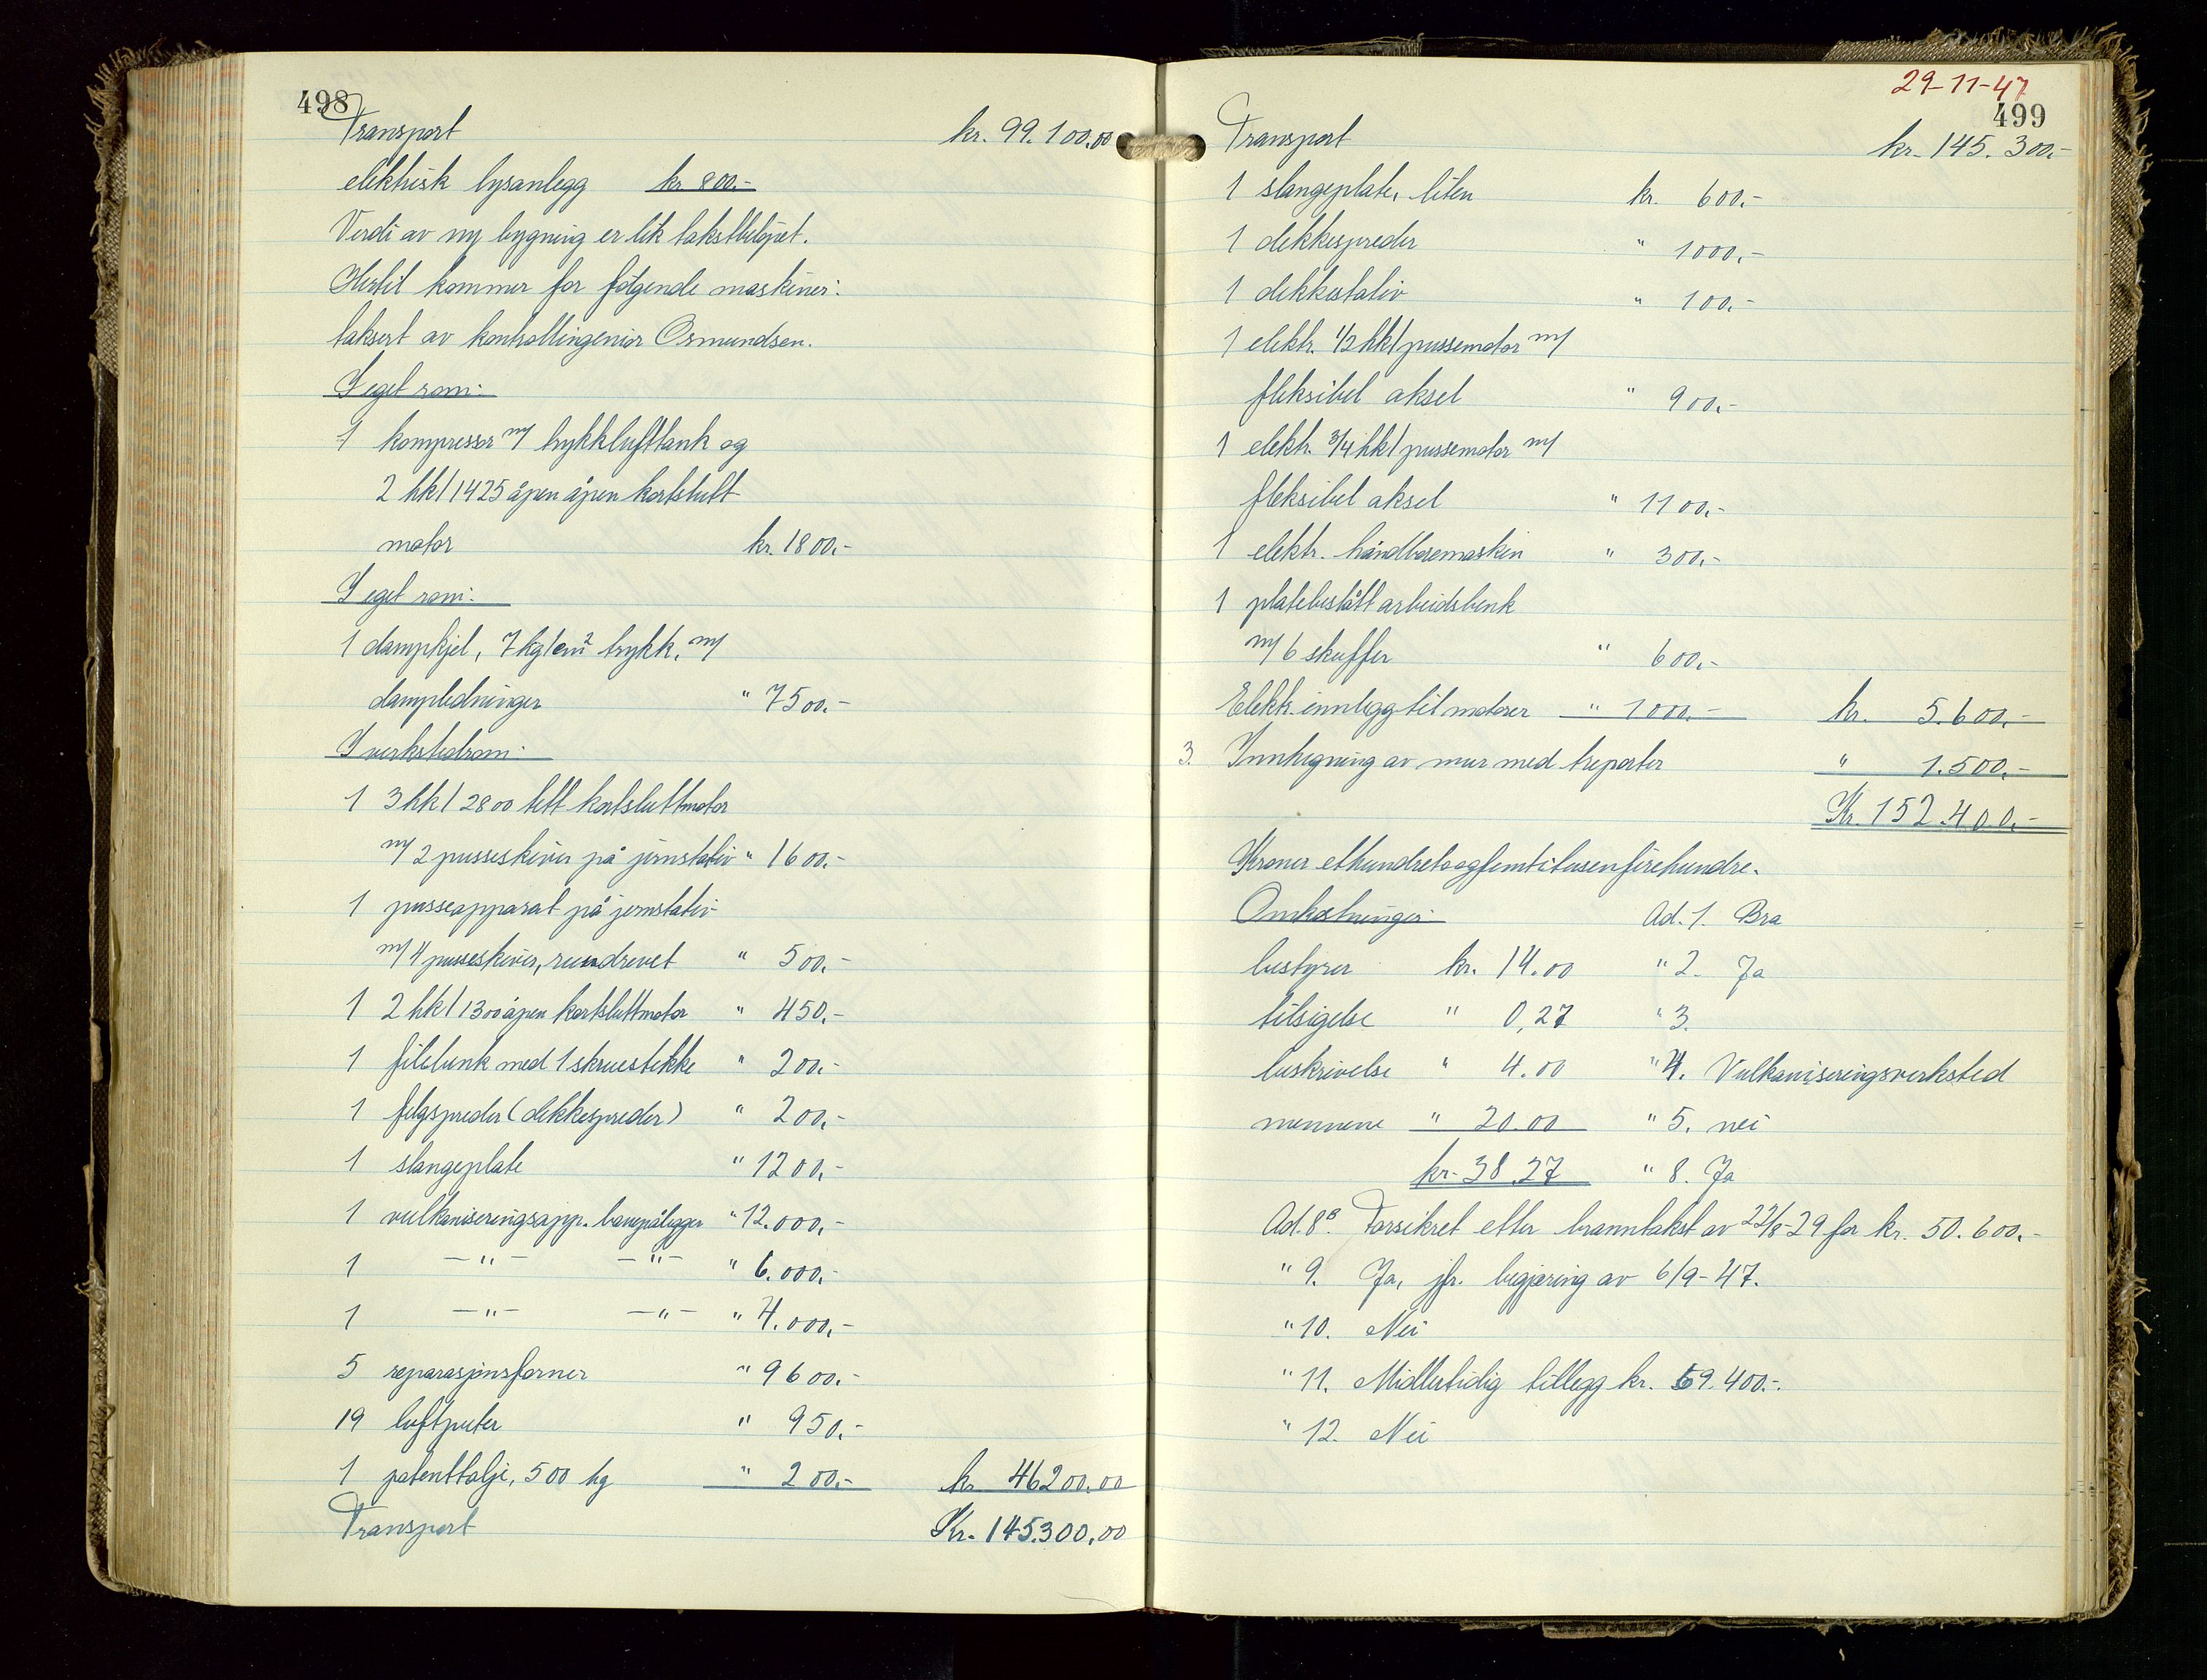 498
Transport kr. 99.100.00
elektrisk lysanlegg kr 800.-
Verdi av ny bygning er lik takstbeløpet.
Hertil kommer for følgende maskiner:
taksert av kontrollingeniør Osmundsen.
I eget rom:
1 kompressor m/ trykklufttank og
2 hk/1425 åpen åpen kortslutt
motor kr. 1800.-
I eget rom:
1 dampkjel, 7 kg/cm² trykk, m/
dampledninger " 7500.-
I verkstedrom:
1 3 hk/2800 tett kortsluttmotor
m/ 2 pusseskiver på jernstativ " 1600.-
1 pusseapparat på jernstativ
m/ 4 pusseskiver, remdrevet " 500.-
1 2 hk/1300 åpen kortsluttmotor " 450.-
1 filebenk med 1 skruestikke " 200.-
1 felgspreder (dekkespreder) " 200.-
1 slangeplate " 1200.-
1 vulkaniseringsapp. banepålegger " 12.000.-
1 -"- -"- " 6.000.-
1 -"- -"- " 4.000.-
5 reparasjonsformer " 9600.-
19 luftputer " 950.-
1 patenttalje, 500 kg " 200.- kr 46200.00
Transport Kr. 145.300,00
29-11-47
499
Transport kr. 145.300.-
1 slangeplate, liten kr. 600.-
1 dekkespreder " 1000.-
1 dekkestativ " 100.-
1 elektr. 1/2 hk/pussemotor m/
fleksibel aksel " 900.-
1 elektr. 3/4 hk/pussemotor m/
fleksibel aksel " 1100.-
1 elektr. håndboremaskin " 300.-
1 platebeslått arbeidsbenk
m/ 6 skuffer " 600.-
Elekk. innlegg til motorer " 1000.- kr. 5.600.-
3. Innhegning av mur med treporter " 1.500.-
Kr. 152.400.-
Kroner ethundretoogfemtitusenfirehundre.
Omkostninger: Ad. 1. Bra
bestyrer kr. 14.00 " 2. Ja
tilsigelse " 0,27 " 3.
beskrivelse " 4.00 " 4. Vulkaniseringsverksted
mennene " 20.00 " 5. nei
kr. 38,27 " 8. Ja
Ad. 8B. Forsikret etter branntakst av 22/8-29 for kr. 50.600.-
" 9. Ja, jfr. begjæring av 6/9-47.
" 10. Nei
" 11. Midlertidig tillegg kr. 59.400.-.
" 12. Nei